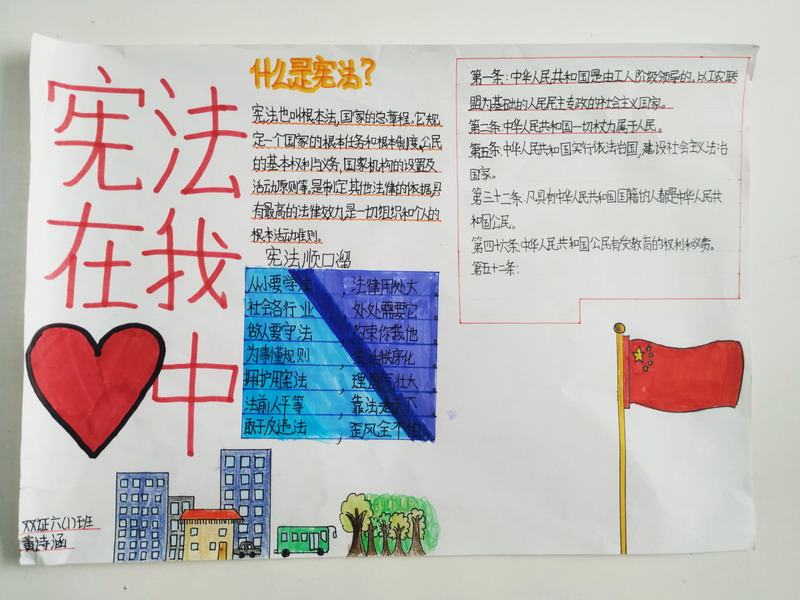 宪法
在我
中
什么是宪法?
宪法也叫根本法,国家的总章程。它规
定一个国家的根本任务和根本制度,公民
的基本权利与义务,国家机构的设置及
活动原则等。是制定其他法律的依据,具
有最高的法律效力,是一切组织和个人的
根本活动准则。
宪法顺口溜
从小要学法,法律用处大。
社会各行业,处处需要它。
做人要守法,约束你我他。
为事懂规则,生活秩序化。
拥护用宪法,理直气壮大
法前人平等,靠法走天下
敢于反违法,歪风全不怕。
第一条:中华人民共和国是由工人阶级领导的,以工农联
盟为基础的人民民主专政的社会主义国家。
第二条:中华人民共和国一切权力属于人民。
第五条:中华人民共和国实行依法治国,建设社会主义法治
国家。
第三十二条:凡具有中华人民共和国国籍的人都是中华人民共
和国公民。
第四十六条:中华人民共和国公民有受教育的权利和义务。
第五十二条:
六(1)班
黄诗涵